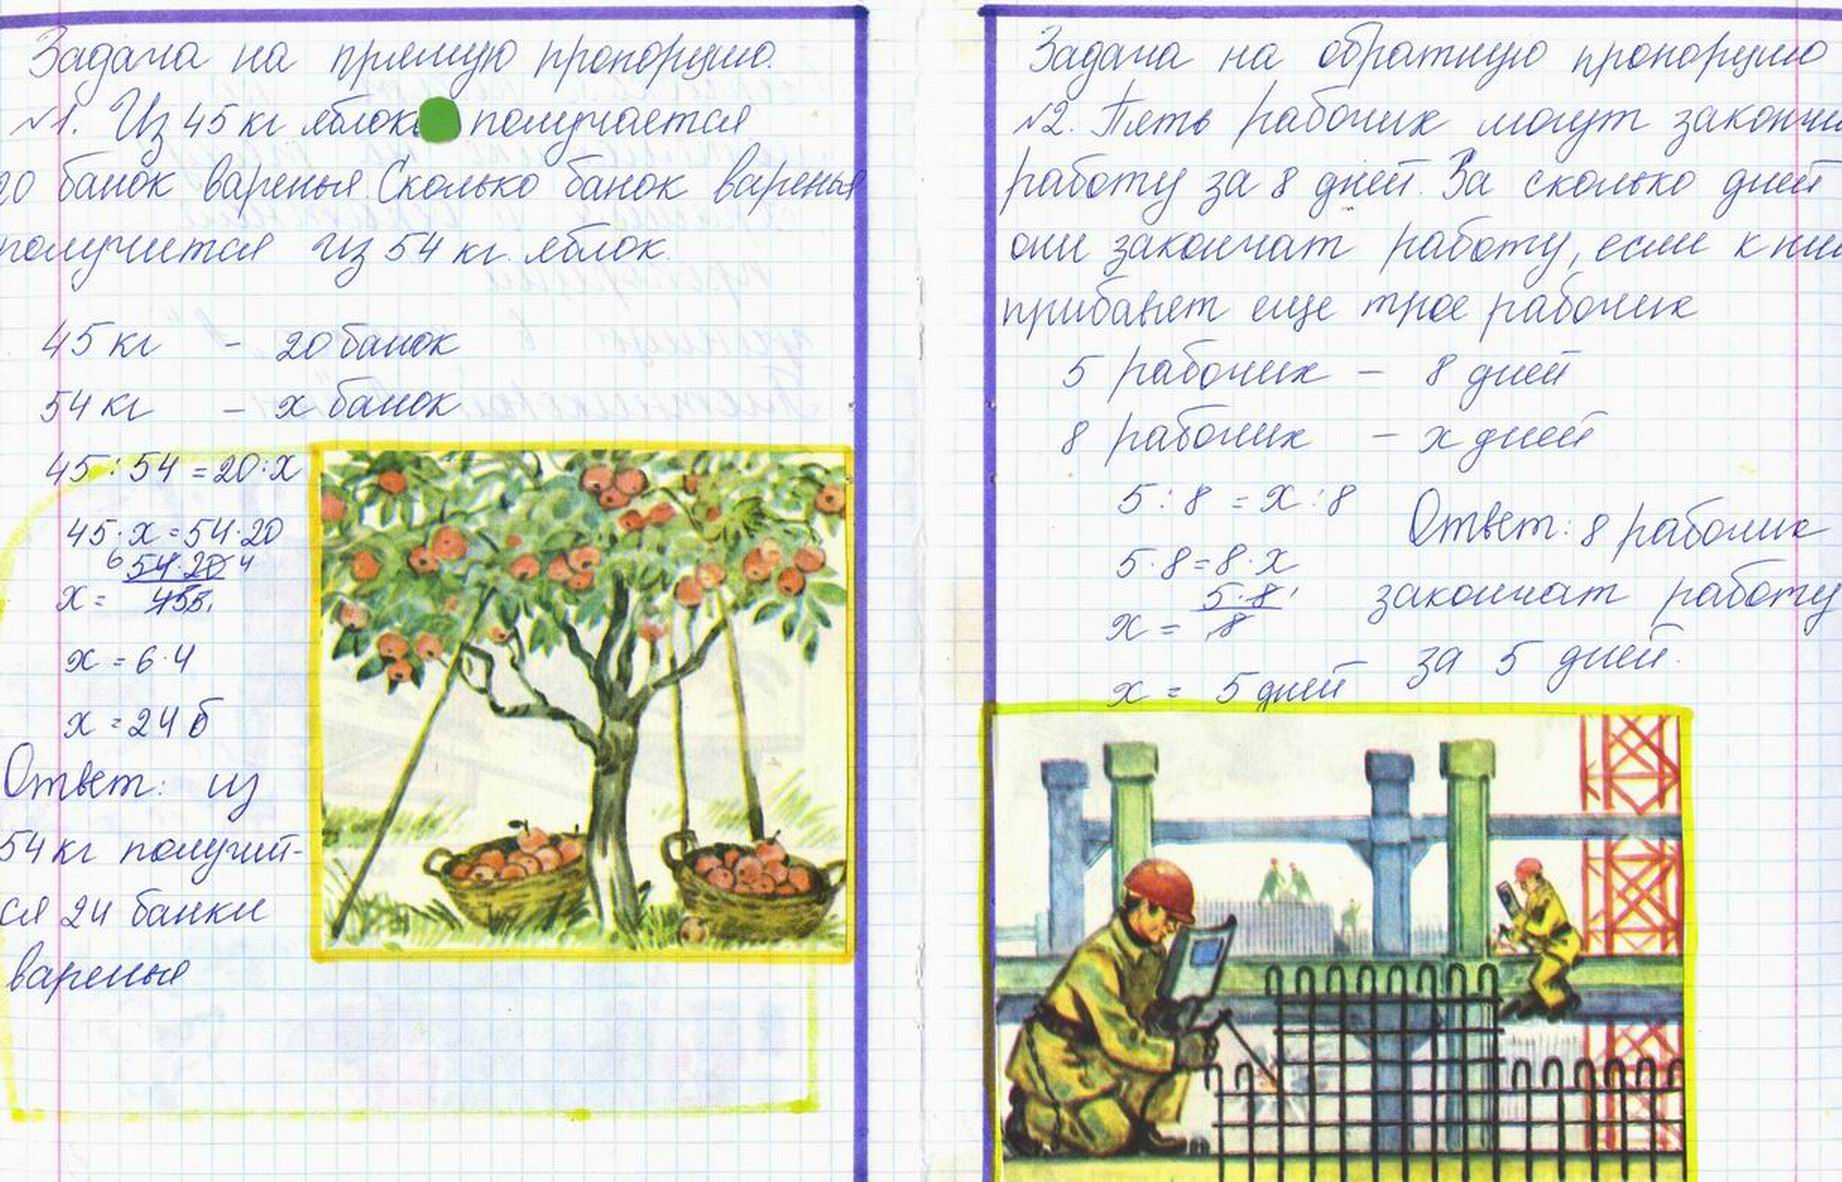 Задача на прямую пропорцию.
№1. Из 45 кг яблок получается
20 банок варенья. Сколько банок варенья
получится из 54 кг яблок.
45 кг - 20 банок
54 кг - х банок
45 : 54 = 20 : х
45 · х = 54 · 20
6 54 · 20 4
х = 455 1
х = 6 · 4
х = 24 б
Ответ: из
54 кг получит-
ся 24 банки
варенья
Задача на обратную пропорцию
№2. Пять рабочих могут закончи
работу за 8 дней. За сколько дней
они закончат работу, если к ни
прибавят еще трое рабочих
5 рабочих - 8 дней
8 рабочих - х дней
5 : 8 = х : 8
5 · 8 = 8 · х
5 · 8 1
х = 8
х = 5 дней
Ответ: 8 рабочих
закончат работу
за 5 дней.